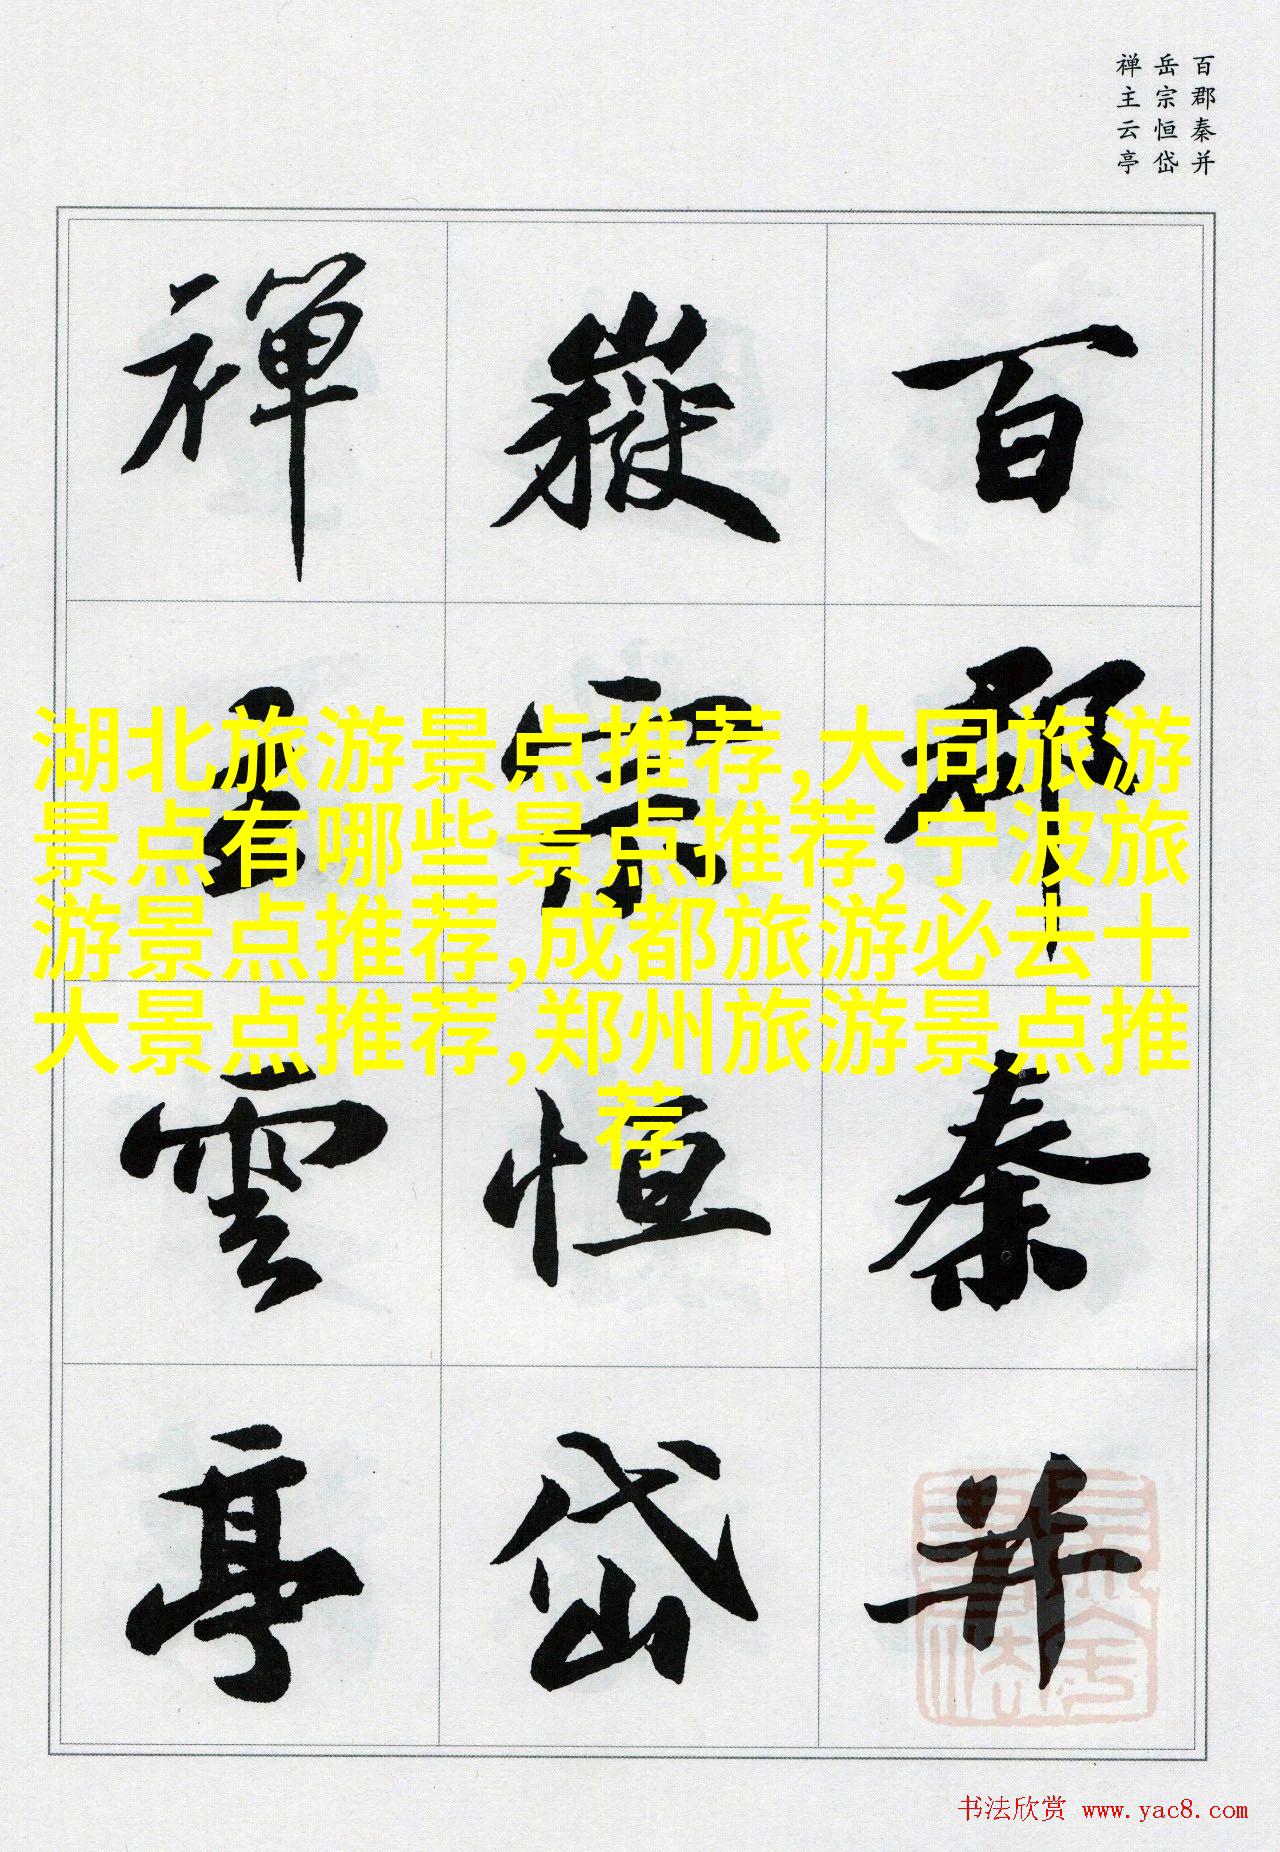 百郡秦并
岳宗恒岱
禅主云亭
百郡秦并
嶽宗恒岱
禪主雲亭
湖北旅游景点推荐,大同旅游
景点有哪些景点推荐,宁波旅
游景点推荐,成都旅游必去十
大景点推荐,郑州旅游景点推
荐
书法欣赏 www.yac8.com